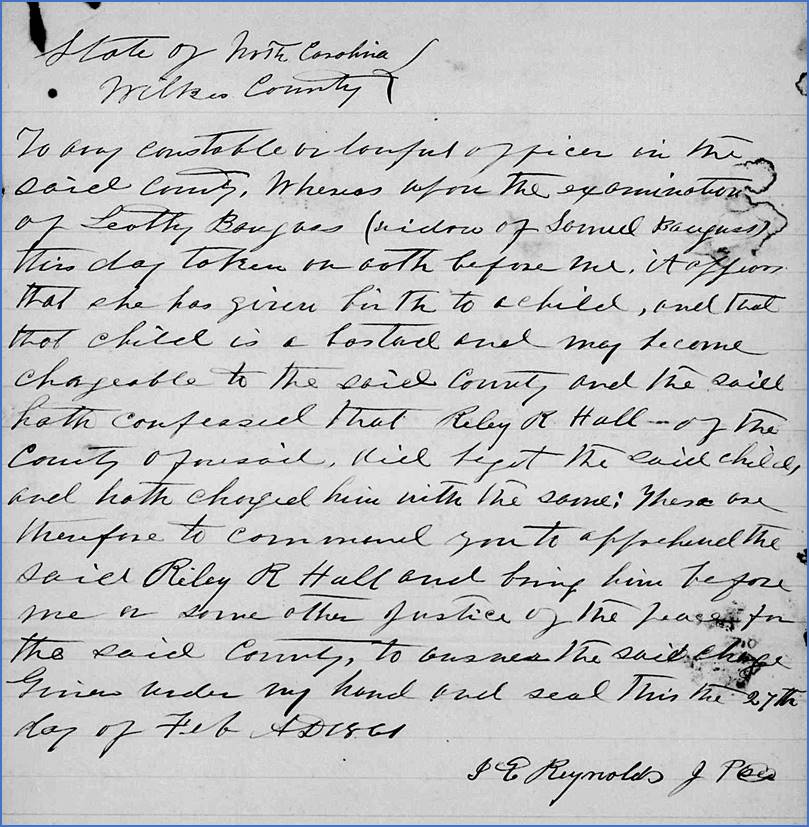 State of North Carolina
Wilkes County
To any constable or lawful officer in the
said County. Whereas upon the examination
of Leothy Bauguss (widow of Samuel Bauguss)
this day taken on oath before me, it appears
that she has given birth to a child, and that
that child is a bastard and may become
chargeable to the said County and the said
hath confessed that Riley R Hall - of the
County aforesaid, did beget the said child,
and hath charged him with the same: These are
therefore to command you to apprehend the
said Riley R Hall and bring him before
me or some other Justice of the peace for
the said County, to answer the said charge
Given under my hand and seal this the 27th
day of Feb AD 1861
Reynolds J